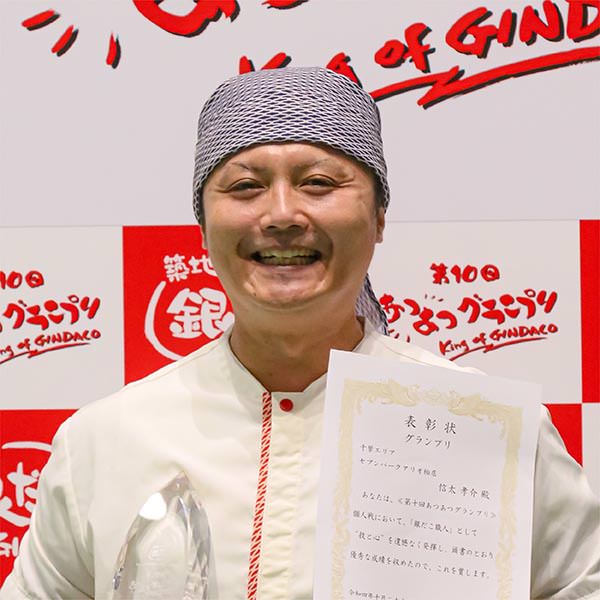 King of GINDACO
第10回
あつあつグランプリ
King of GINDACO
築地
銀
表彰状
グランプリ
千葉エリア
セブンパークアリオ柏店
信太 孝介 殿
あなたは、≪第十回あつあつグランプリ≫
個人戦において、「銀だこ職人」として
"技と心"を遺憾なく発揮し、頭書のとおり
優秀な成績を収めたので、これを賞します。